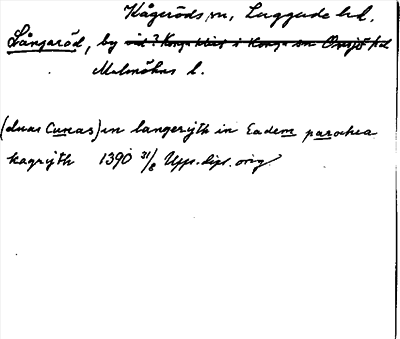 Kågeröds sn, Luggude hd.
Långaröd, by i Konga sn Onsjö hd
Malmöhus l.
(duas Curias) in langerijth in Eadem parochia
kagrijth 1390 31/8 Upps. dipl. orig